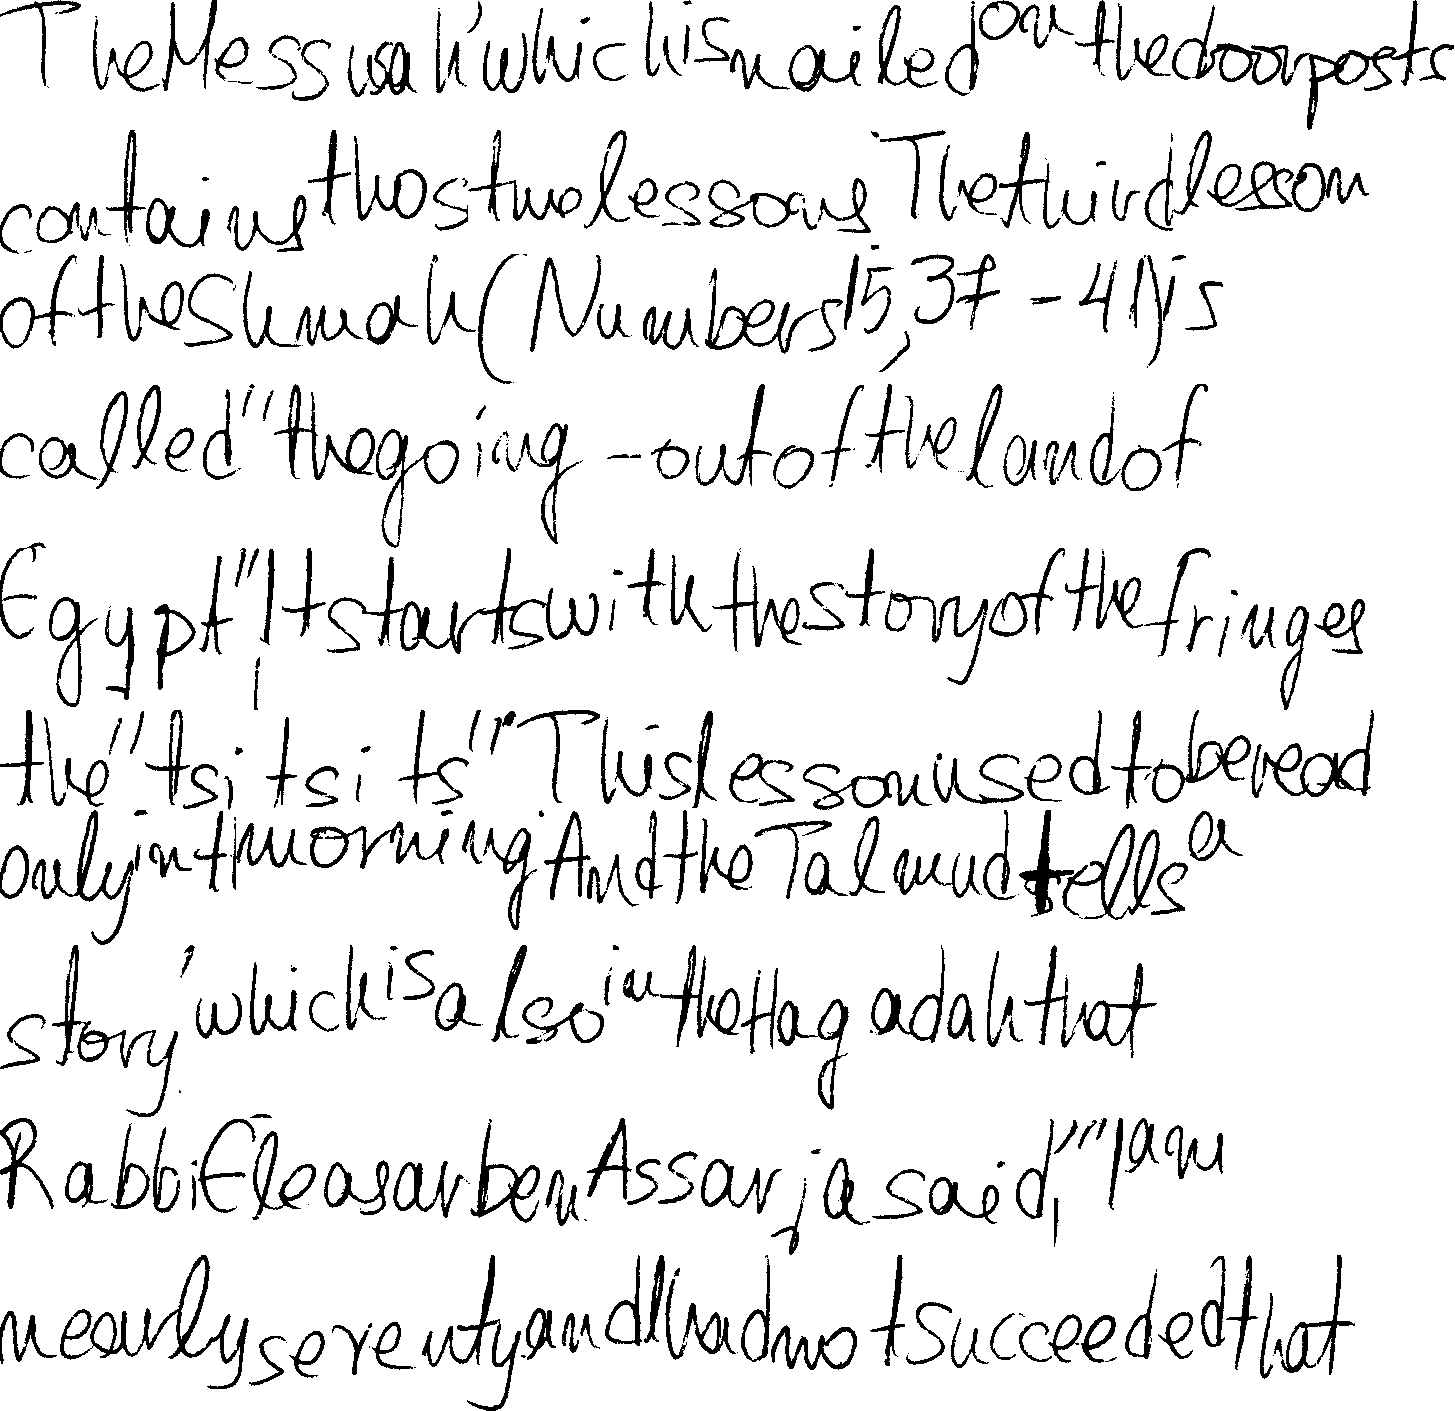 The Messusah' which is nailed on the doorposts
contains thos two lessons The third lesson
of the Shmah (Numbers 15,37-41) is
called "the going-out of the land of
Egypt", It starts with the story of the fringes
the "tsitsits" This lesson used to be read
only in th morning And the Talmud tells a
story 'which is also in the Hagadah that
Rabbi Eleasar ben Assarja said, "I am
nearly seventy and I had not succeeded that